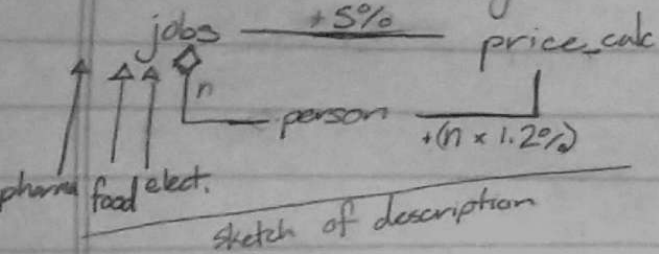 +5%
jobs price_calc
n
person
+(n x 1.2%)
pharma food elect.
sketch of description